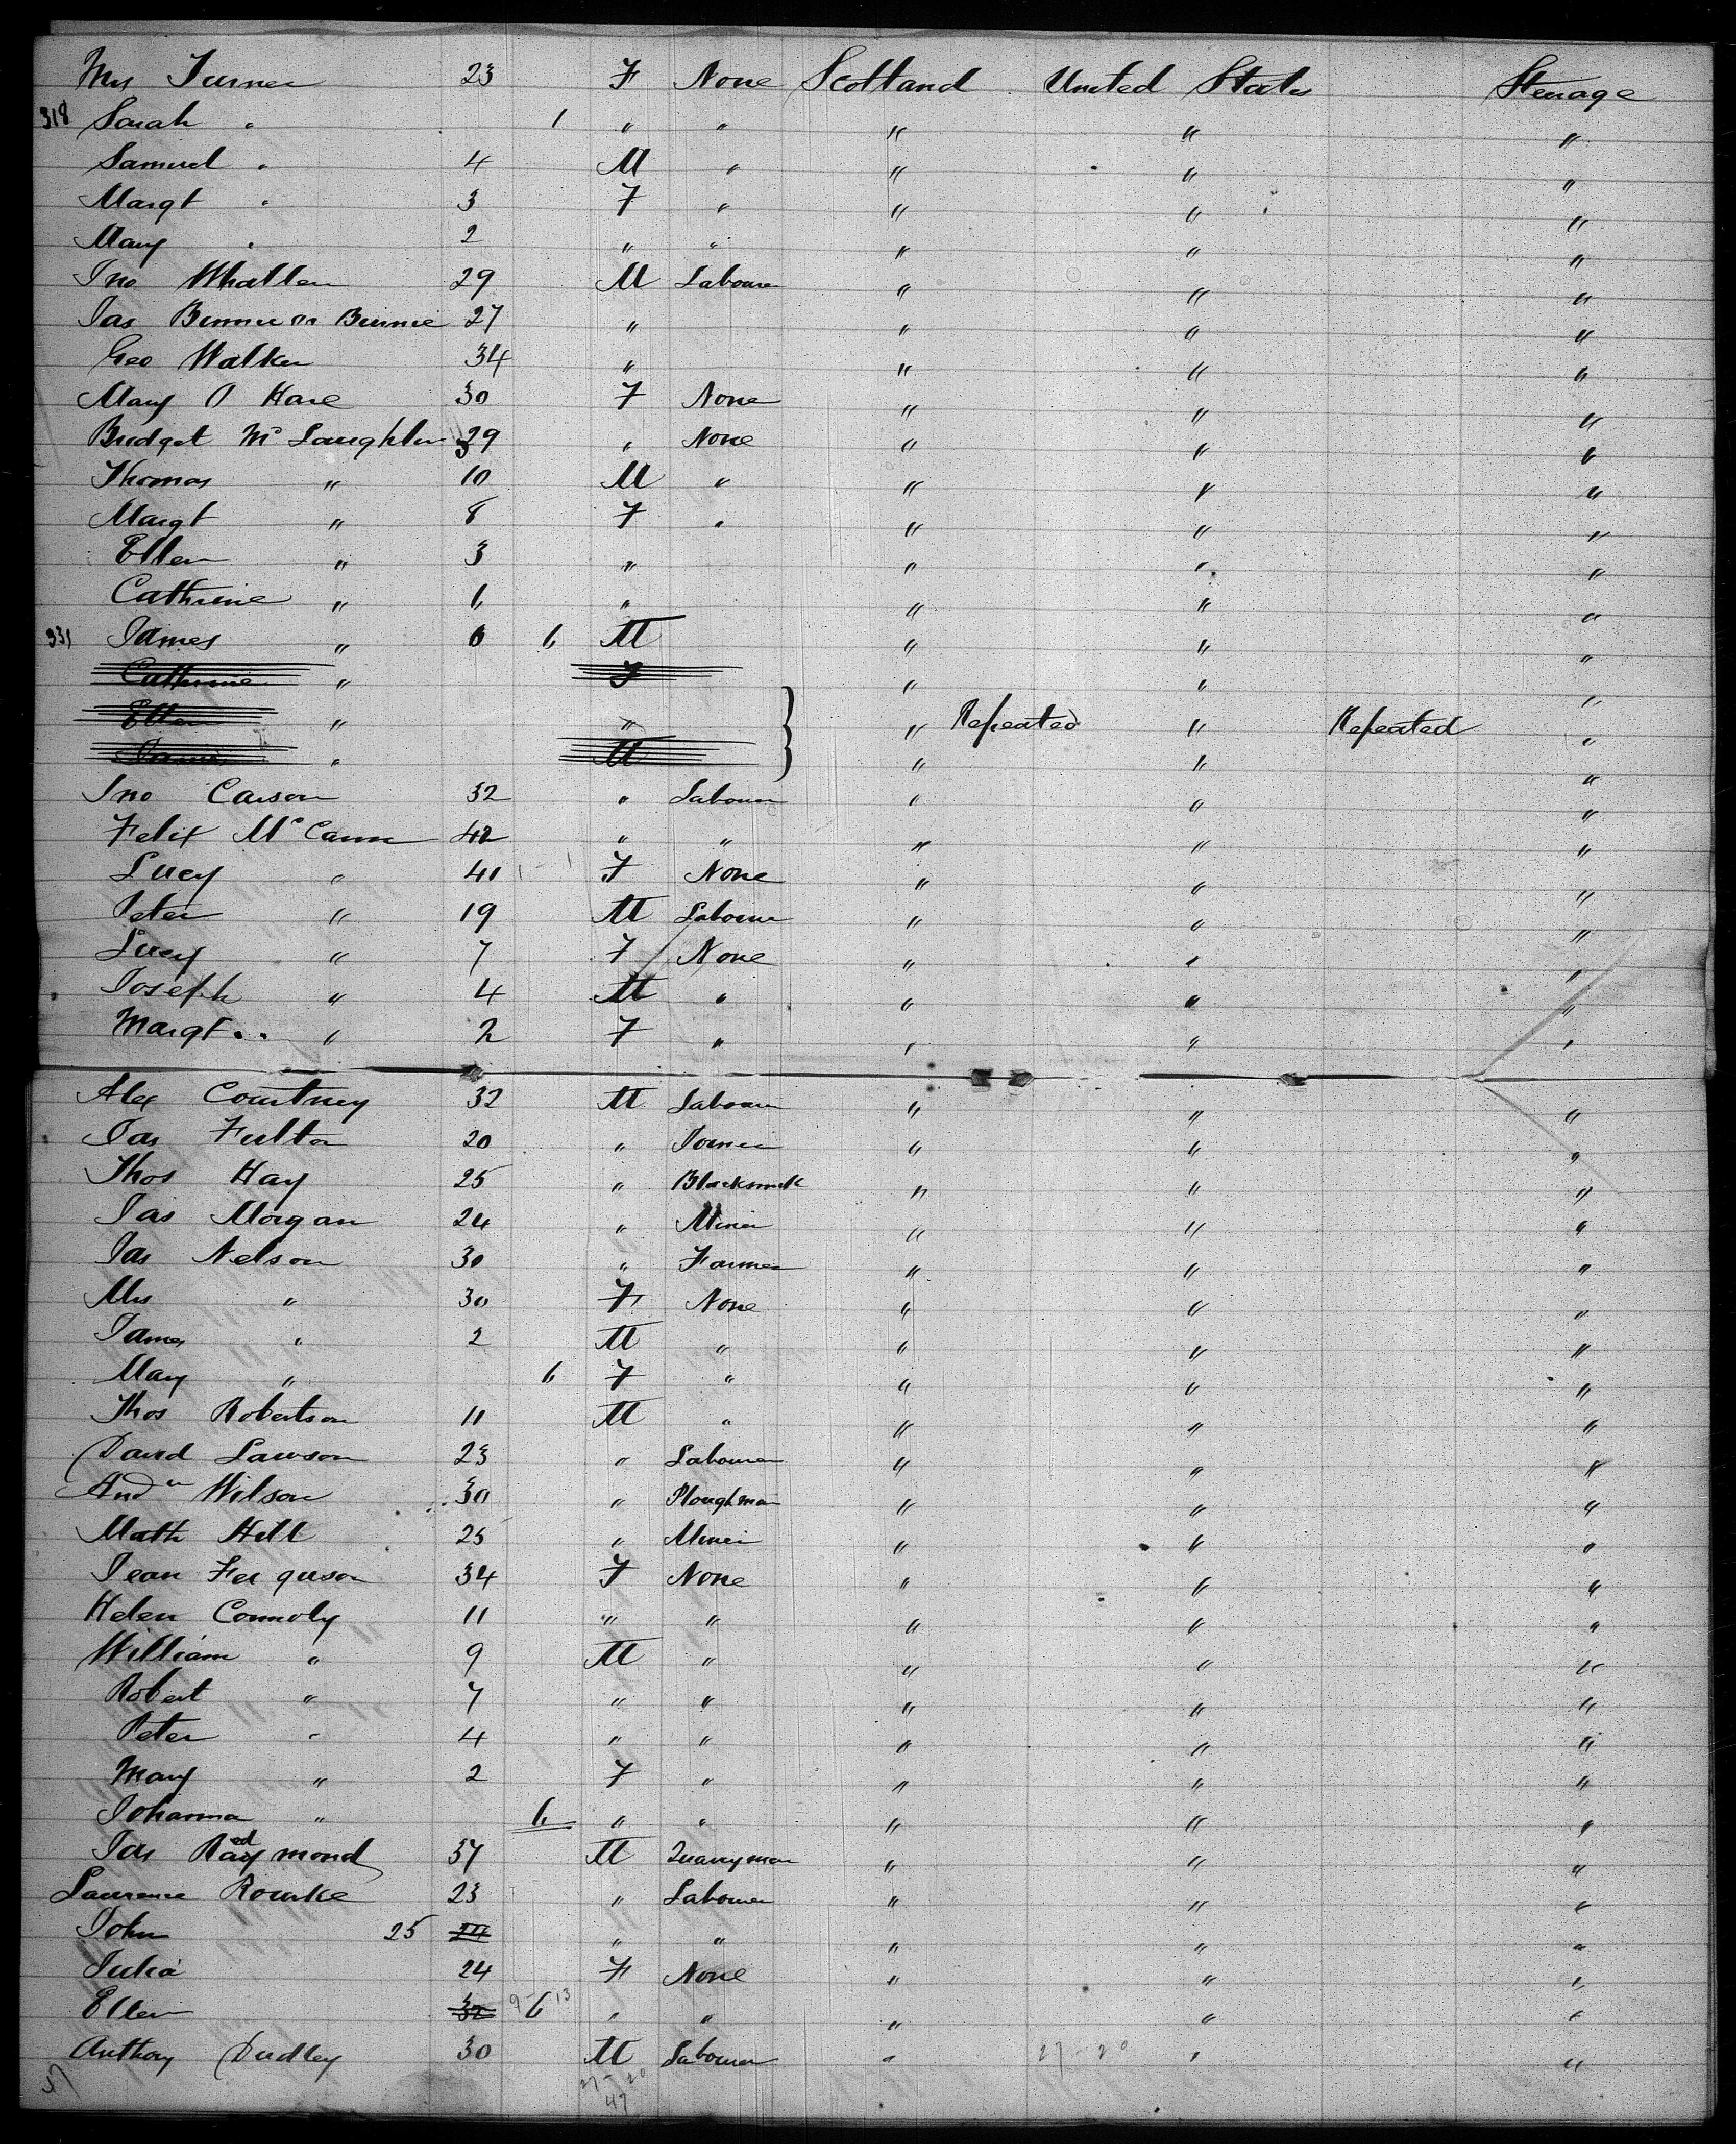 Mrs Turner 23 F None Scotland United States Steerage
318 Sarah " 1 " " " " "
Samuel " 4 M " " " "
Margt " 3 F " " " "
Mary " 2 " " " " "
Jno Whallen 29 M Labourer " " "
Jas Binnie or Birnie 27 " " " "
Geo Walker 34 " " " "
Mary O Hare 30 F None " " "
Bridget Mc Laughlin 39 " None " " "
Thomas " 10 M " " " "
Margt " 8 F " " " "
Ellen " 3 " " " "
Cathrine " 6 " " " "
331 James " 0 6 M " " "
Catherine " F " " "
Ellen " " " Repeated " Repeated "
James " M " " "
Jno Carson 32 " Labourer " " "
Felix Mc Cann 42 " " " " "
Lucy " 40 F None " " "
Peter " 19 M Labourer " " "
Lucy " 7 F None " " "
Joseph " 4 M " " " "
Margt " 2 F " " " "
Alex Courtney 32 M Labourer " " "
Jas Fulton 20 " Joiner " " "
Thos Hay 25 " Blacksmith " " "
Jas Morgan 24 " Miner " " "
Jas Nelson 30 " Farmer " " "
Mrs " 30 F None " " "
James " 2 M " " " "
Mary " 6 F " " " "
Thos Robertson 11 M " " " "
David Lawson 23 " Labourer " " "
Andw Wilson 30 " Ploughman " " "
Math Hill 25 " Miner " " "
Jean Ferguson 34 F None " " "
Helen Connoly 11 " " " " "
William " 9 M " " " "
Robert " 7 " " " " "
Peter " 4 " " " " "
Mary " 2 F " " " "
Johanna " 6 " " " " "
Jas Raymond ed 37 M Quarryman " " "
Laurence Rourke 23 " Labourer " " "
John 25 24 " " " " "
Julia 24 F None " " "
Ellen 32 9 - 6 13 " " " " "
Anthony Dudley 30 M Labourer " 27 - 20 " "
27 - 20
47